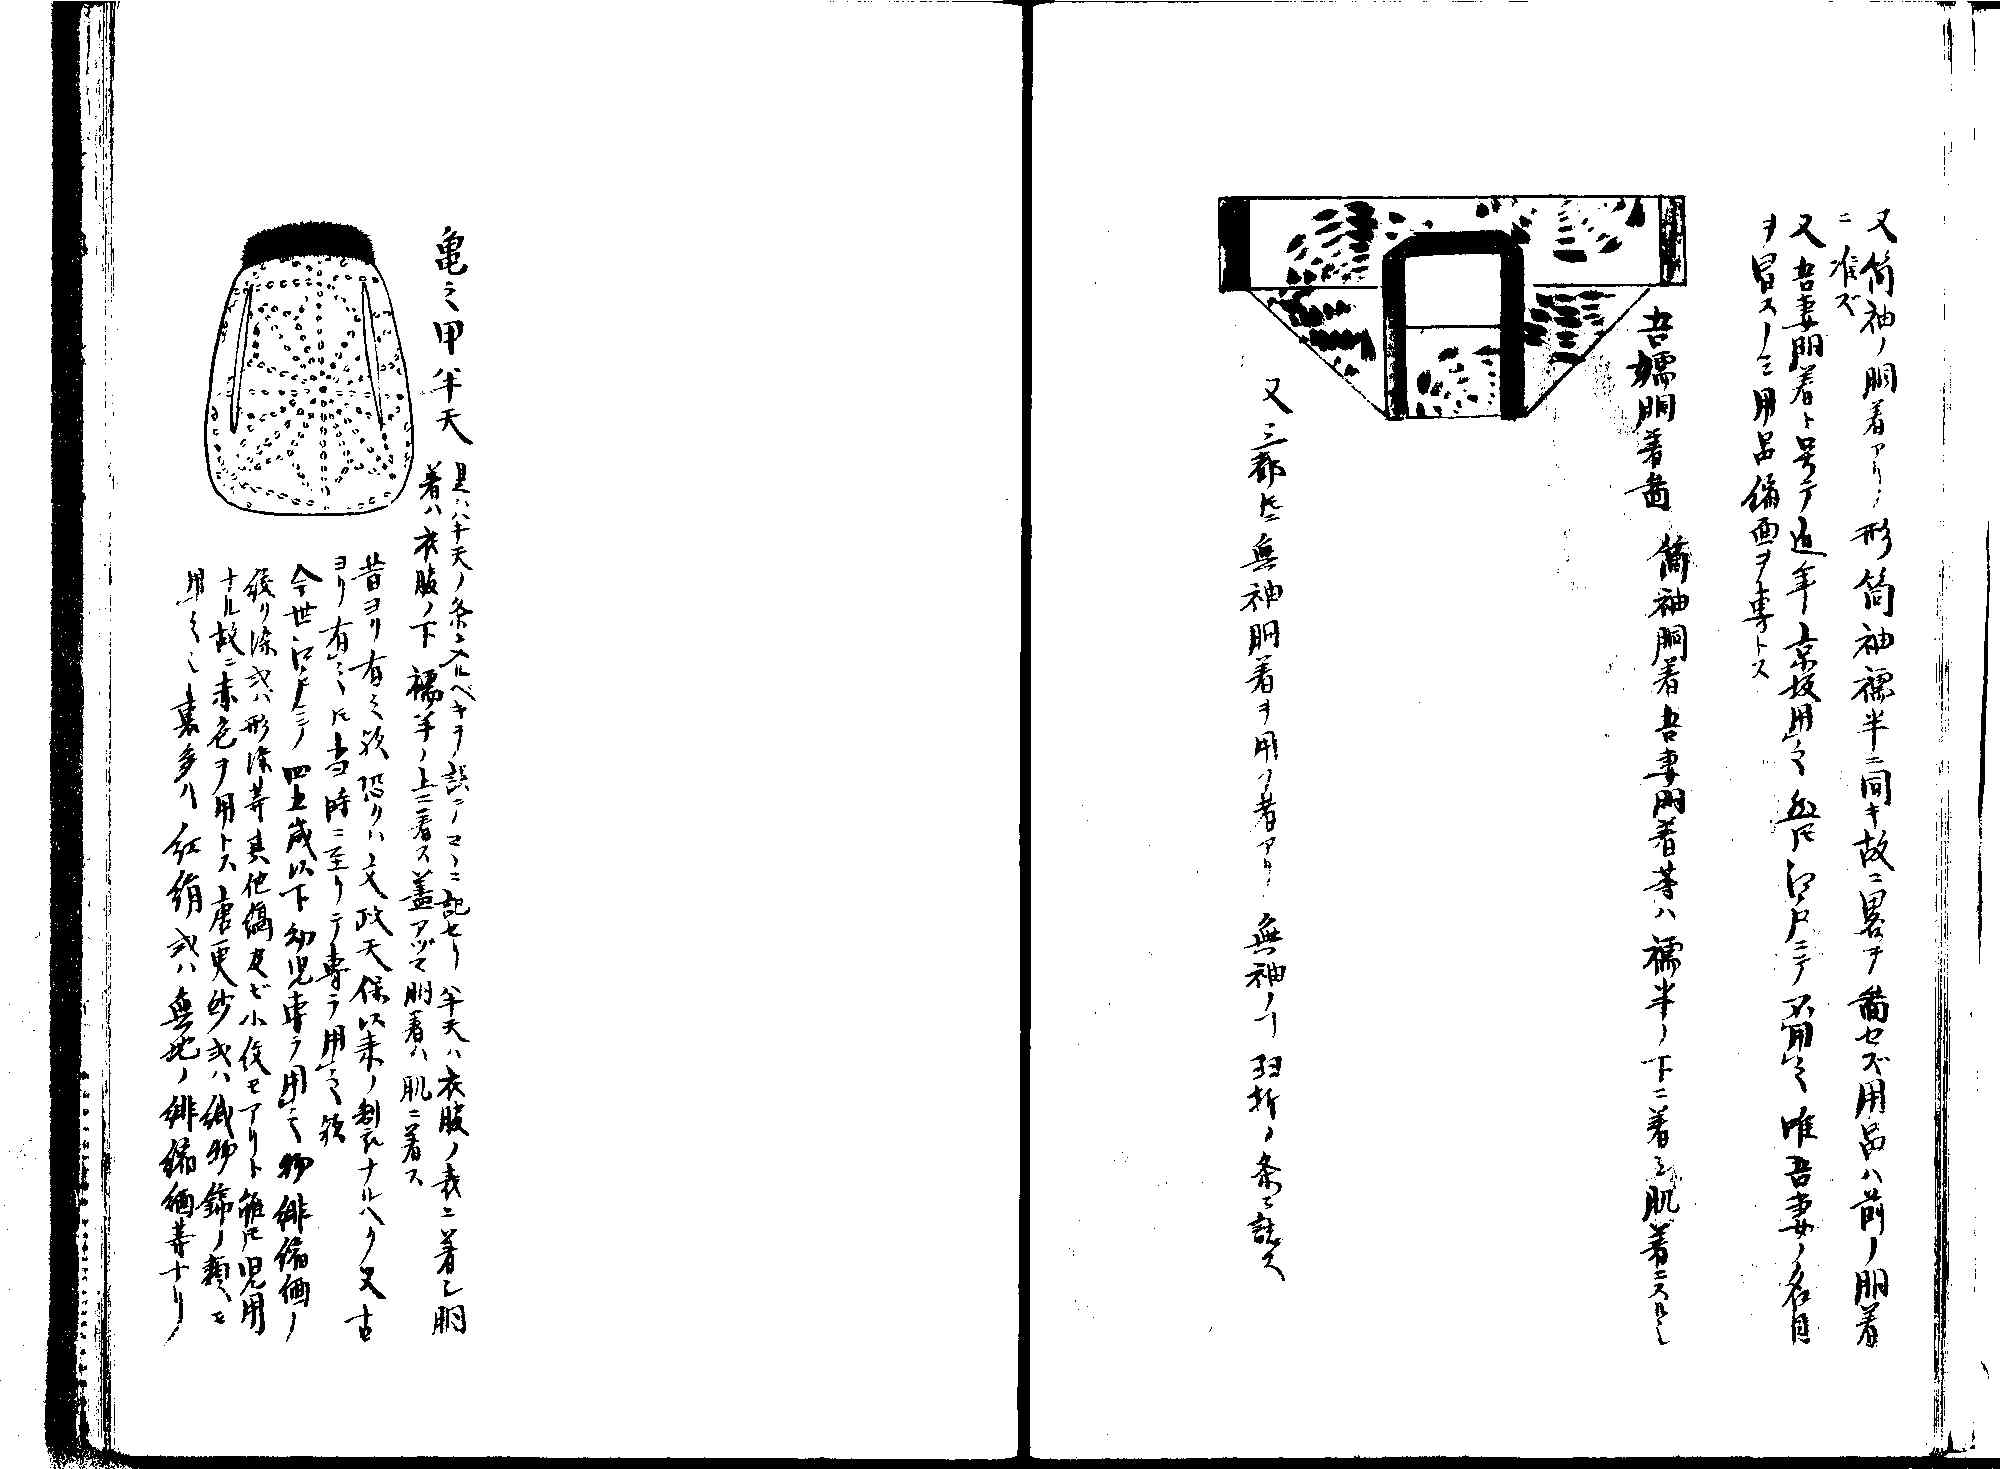 又筒袖ノ胴着アリ形筒袖襦半ニ同キ故ニ畧ヲ圖セズ用品ハ前ノ胴着
ニ准ズ
又吾妻胴着ト号テ近年京坂用之然𪜈江戸ニテ不用之唯吾妻ノ名目
ヲ冒スノミ用品縮画ヲ専トス
吾嬬胴着圖
筒袖胴着吾妻胴着等ハ襦半ノ下ニ着シ肌着ニスル也
又三都𪜈ニ無袖胴着ヲ用フ者アリ無袖ノヿ羽折ノ条ニ註ス
亀之甲半天
是ハ半天ノ条ニ入ルベキヲ誤テコヽニ記セリ半天ハ衣服ノ表ニ着シ胴
着ハ衣服ノ下襦半ノ上ニ着ス蓋アヅマ胴着ハ肌ニ着ス
昔ヨリ有之歟恐クハ文政天保以来ノ製ナルヘク又古
ヨリ有之𪜈当時ニ至リテ専ラ用之歟
今世江戸ニテ四五歳以下幼児専ラ用之物緋縮緬ノ
絞リ染或ハ形染等其他縞及ビ小紋モアリト雖𪜈児用
ナル故ニ赤色ヲ用トス唐更紗或ハ織物錦ノ類モ
用之裏多ハ紅絹或ハ無地ノ緋縮緬等ナリ